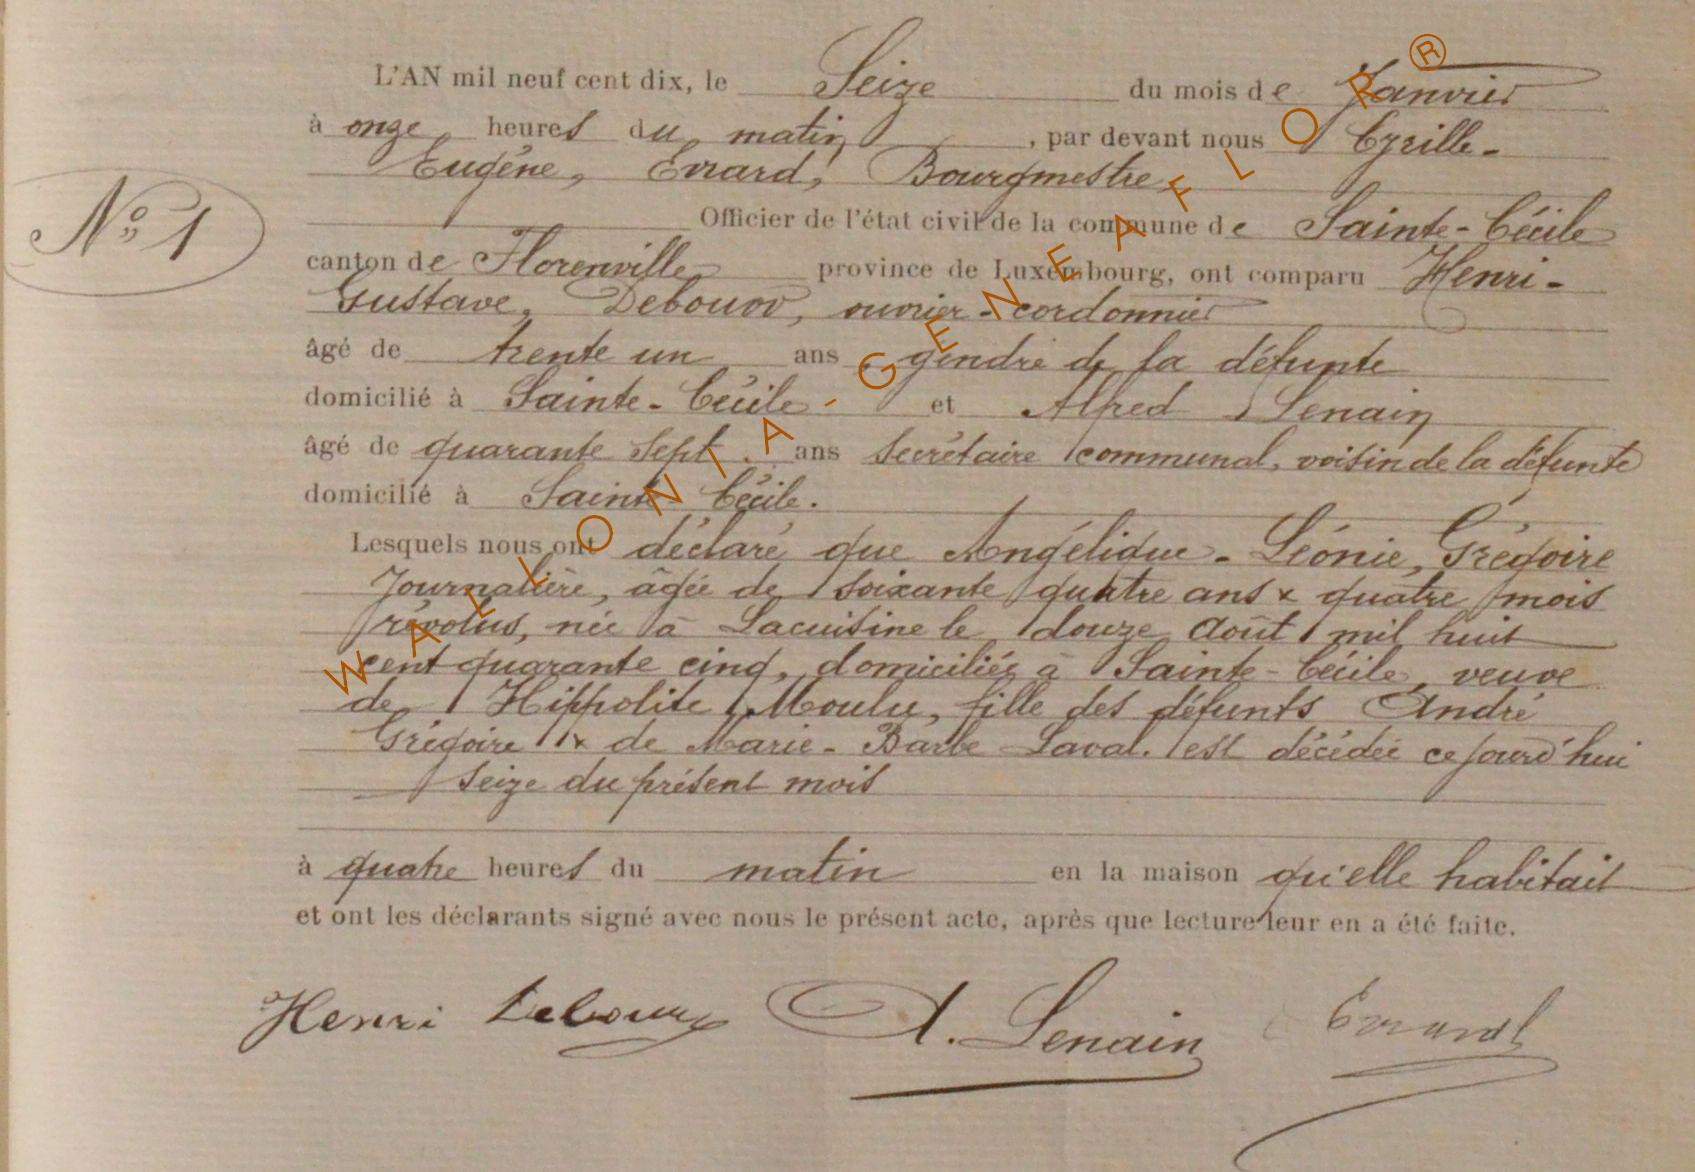 L'AN mil neuf cent dix, le Seize du mois de Janvier
à onze heures du matin, par devant nous Cyrille-
Eugène, Evrard, Bourgmestre
N° 1
Officier de l'état civil de la commune de Sainte-Cécile
canton de Florenville province de Luxembourg, ont comparu Henri-
Gustave, Deboux, ouvrier-cordonnier
âgé de trente un ans, gendre de la défunte
domicilié à Sainte-Cécile et Alfred Lenain
âgé de quarante sept ans secrétaire communal, voisin de la défunte
domicilié à Sainte Cécile.
Lesquels nous ont déclaré que Angélique-Léonie, Grégoire
Journalière, âgée de soixante quatre ans & quatre mois
révolus, née à Lacuisine le douze Août mil huit
cent quarante cinq, domiciliée à Sainte-Cécile, veuve
de Hippolite Moulu, fille des défunts André
Grégoire & de Marie-Barbe Laval. est décédée ce jourd'hui
seize du présent mois
à quatre heures du matin en la maison qu'elle habitait
et ont les déclarants signé avec nous le présent acte, après que lecture leur en a été faite.
Henri Deboux A. Lenain Evrard
WALLONIA-GENEAFLOR®